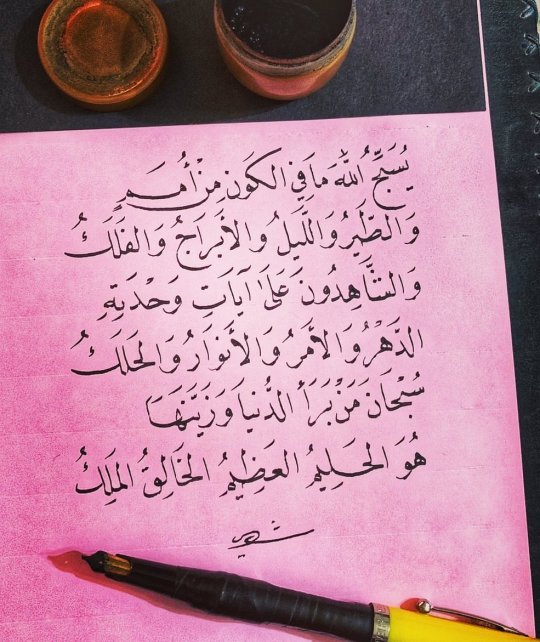 يُسَبِّحُ اللهَ مَا فِي الكَونِ مِنْ أُمَمٍ
وَالطَّيرُ وَاللَّيلُ والأبرَاجُ وَالفَلَكُ
وَالشَّاهِدُونَ عَلَىٰ آيَاتِ وَحْدَتِهِ
الدَّهْرُ وَالأمرُ وَالأنوَارُ وَالحَلَكُ
سُبْحَانَ مَنْ بَرَأَ الدُّنيَا وَزَيَّنَهَا
هُوَ الحَلِيمُ العَظِيمُ الخَالِقُ المَلِكُ